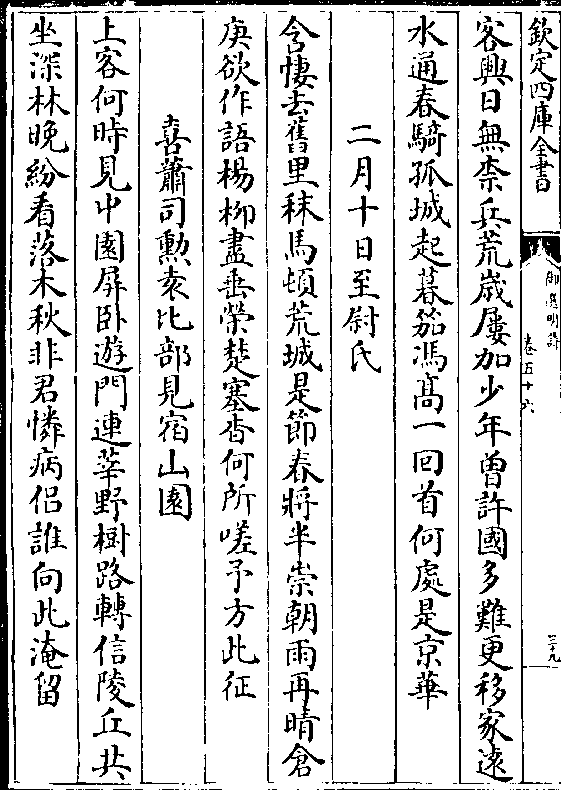 欽定四庫全書
御選明詩
卷五十六
三十九
客興日無柰兵荒歲屢加少年曽許國多難更移家遠
水通春騎孤城起暮笳馮髙一回首何處是京華
二月十日至尉氏
含悽去舊里秣馬頓荒城是節春將半崇朝雨再晴倉
庚欲作語楊柳盡垂榮楚塞杳何所嗟予方此征
喜蕭司勲袁比部見宿山園
上客何時見中園屏卧遊門連莘野樹路轉信陵丘共
坐深林晚紛看落木秋非君憐病侣誰向此淹留